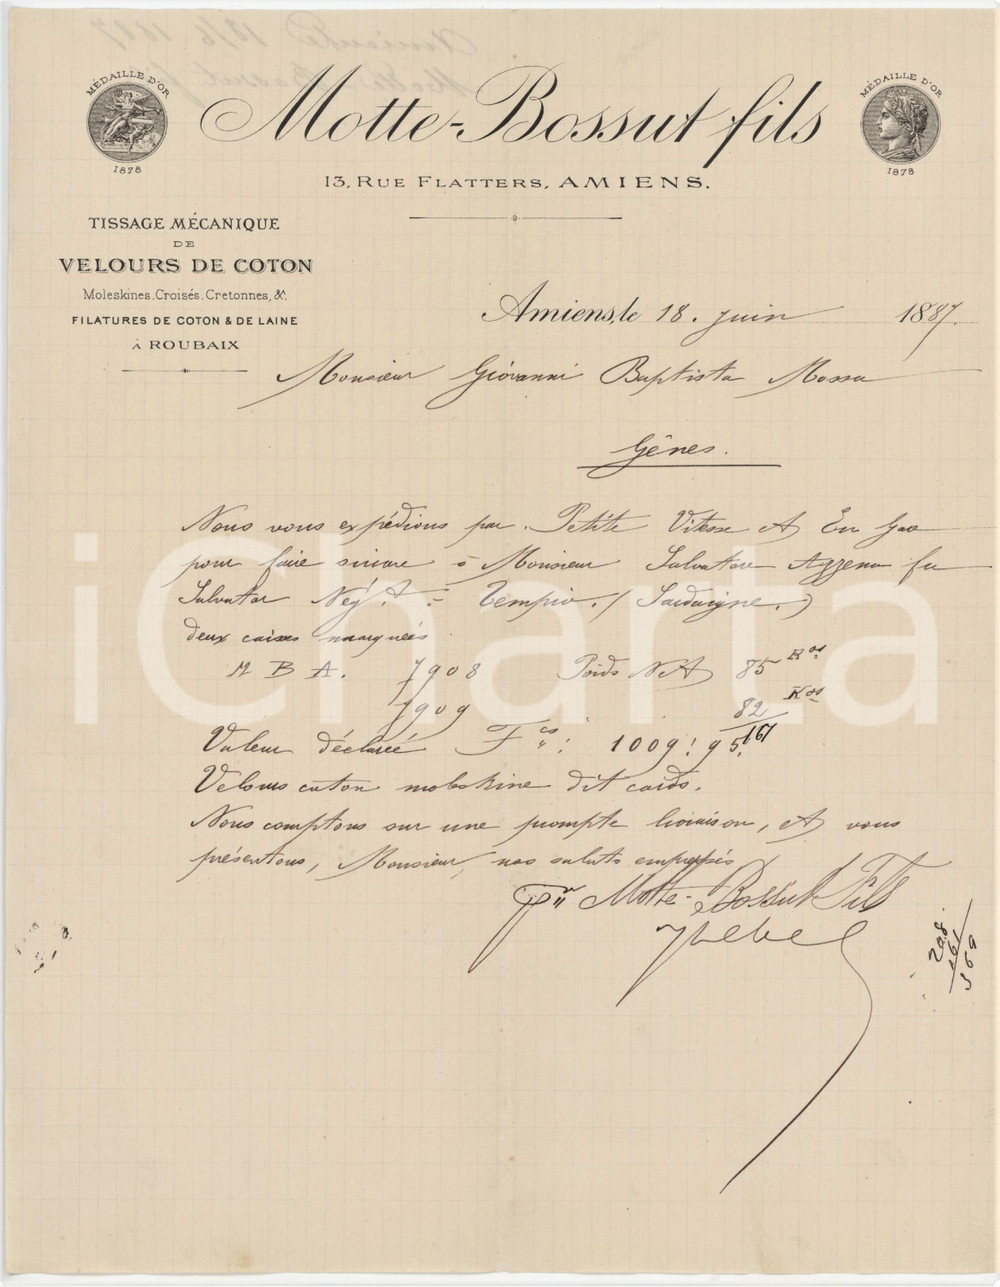 MÉDAILLE D'OR
1878
Motte-Bossut fils
MÉDAILLE D'OR
1878
13, RUE FLATTERS, AMIENS.
TISSAGE MÉCANIQUE
DE
VELOURS DE COTON
Moleskines, Croisés, Cretonnes, &.
FILATURES DE COTON & DE LAINE
À ROUBAIX
Amiens, le 18. juin 1887.
Monsieur Giovanni Baptista Mossa
Gênes.
Nous vous expédions par Petite Vitesse et En
pour faire suivre à Monsieur Salvatore Azzena fu
Salvator Nég.t à Tempio. (Sardaigne.)
deux caisses marquées
M B A. 7908 Poids N.et 85 Kos
7909 82 Kos
Valeur déclarée Fcs: 1009: 95. 167
Velours coton moleskine dit cords.
Nous comptons sur une prompte livraison, et vous
présentons, Monsieur, nos saluts empressés
pr Motte-Bossut Fils
208
161
369
iCharta